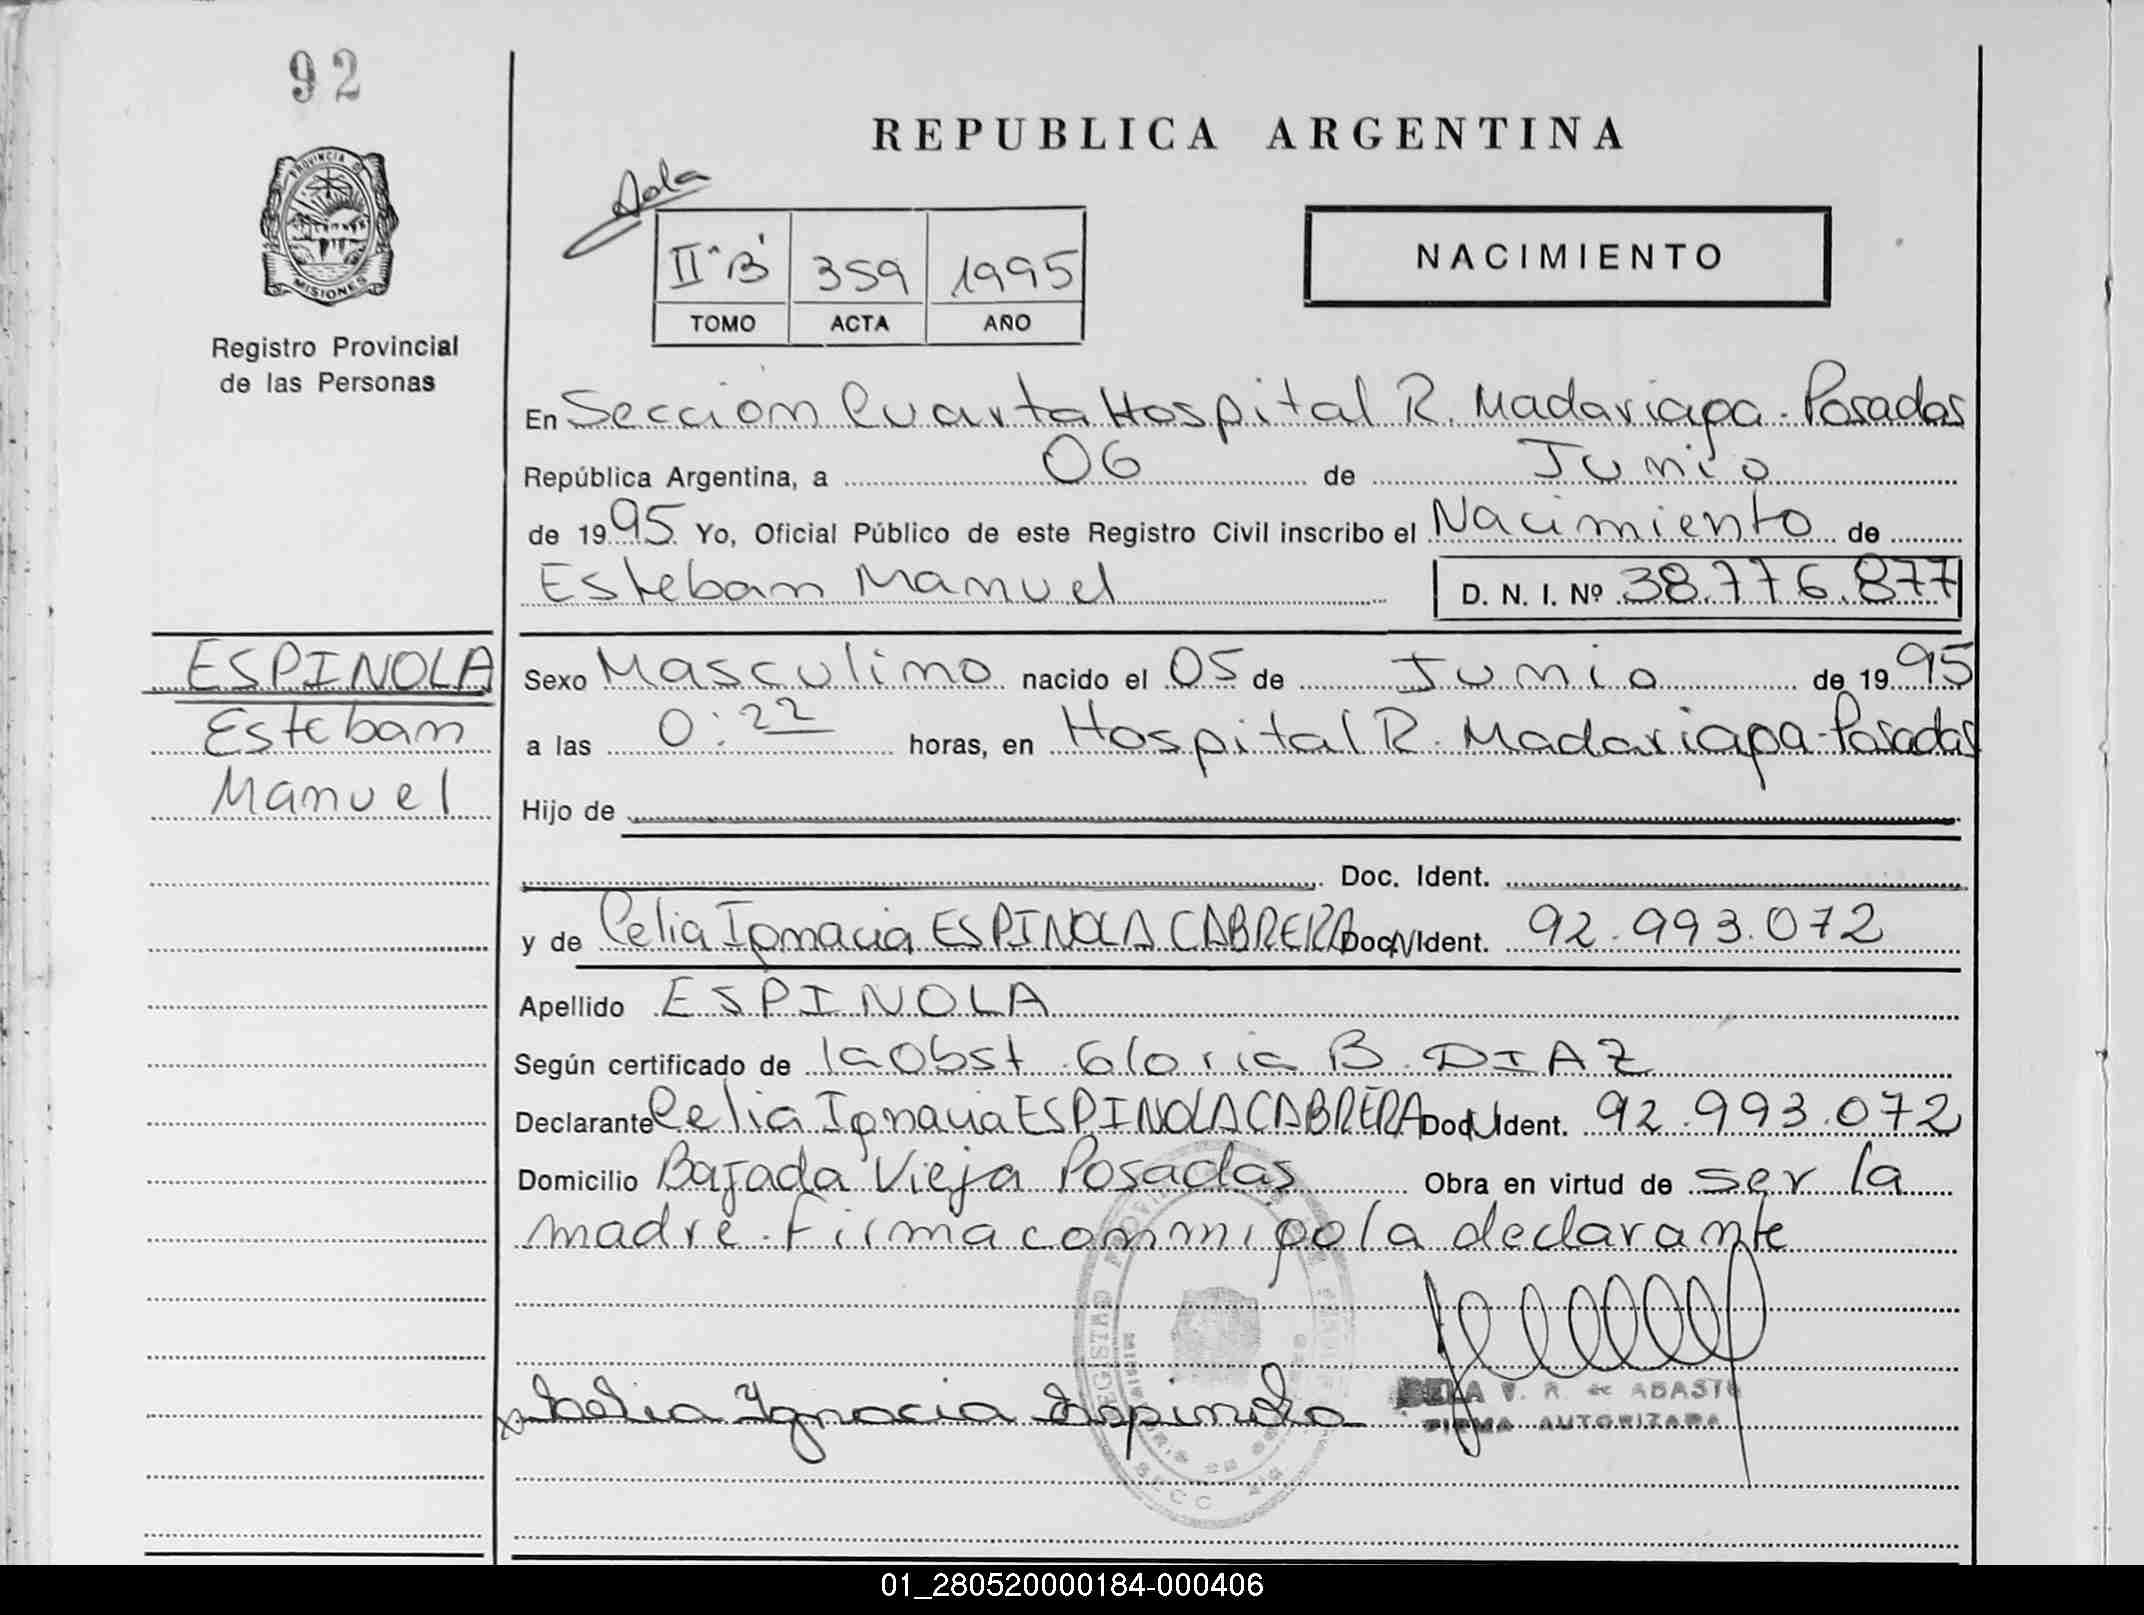 92
REPUBLICA ARGENTINA
Sola
PROVINCIA D
MISIONES
II "B" 359 1995
TOMO ACTA AÑO
NACIMIENTO
Registro Provincial
de las Personas
En Sección Cuarta Hospital R. Madariaga - Posadas
República Argentina, a 06 de Junio
de 1995 Yo, Oficial Público de este Registro Civil inscribo el Nacimiento de
Esteban Manuel D. N. I. Nº 38.776.877
ESPINOLA
Esteban
Manuel
Sexo Masculino nacido el 05 de Junio de 1995
a las 0:22 horas, en Hospital R. Madariaga - Posadas
Hijo de
Doc. Ident.
y de Celia Ignacia ESPINOLA CABRERA Doc. Ident. 92.993.072
Apellido ESPINOLA
Según certificado de la Obst. Gloria B. DIAZ
Declarante Celia Ignacia ESPINOLA CABRERA Doc. Ident. 92.993.072
Domicilio Bajada Vieja Posadas Obra en virtud de ser la
madre. Firma conmigo la declarante
Celia Ignacia Espinola
V. R. de ABASTO
FIRMA AUTORIZADA
01_280520000184-000406